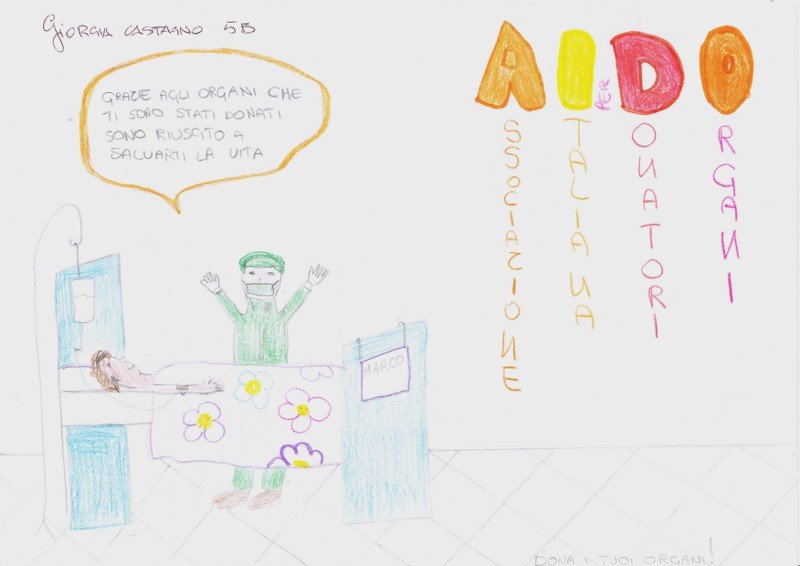 GIORGIA CASTAGNO 5B
GRAZIE AGLI ORGANI CHE
TI SONO STATI DONATI
SONO RIUSCITO A
SALVARTI LA VITA
AIDO
PER
ASSOCIAZIONE
ITALIANA
DONATORI
ORGANI
MARCO
DONA I TUOI ORGANI!